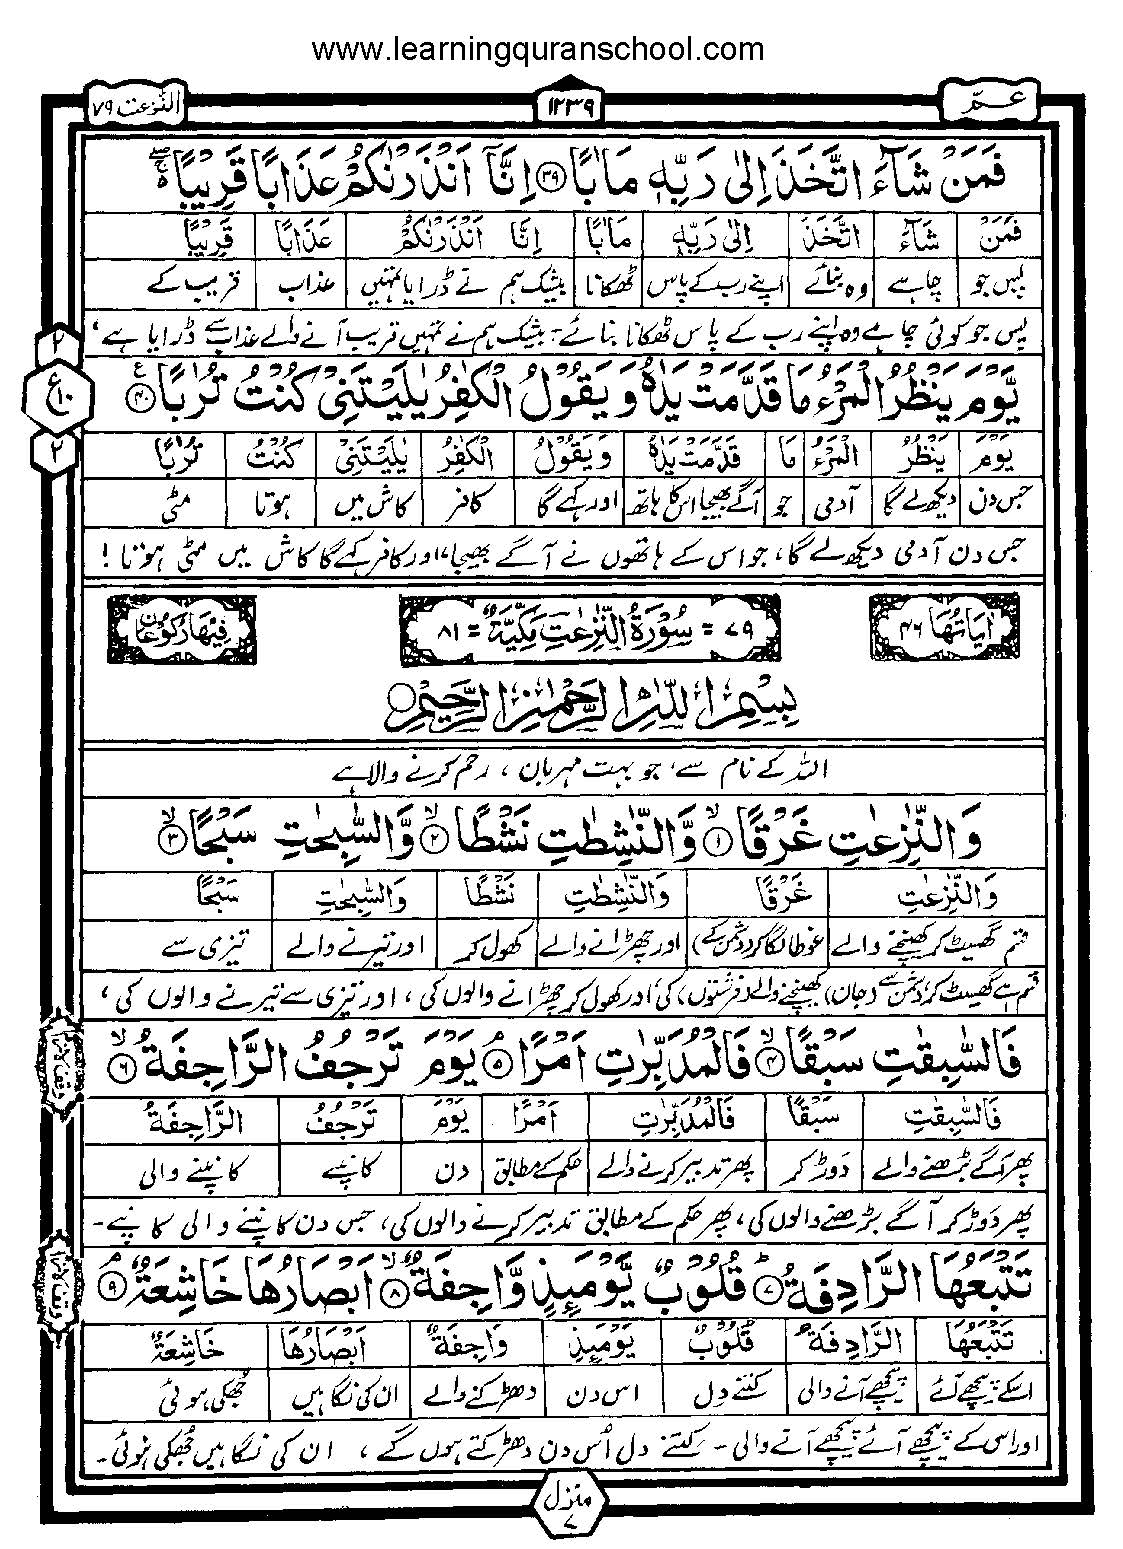 www.learningquranschool.com
عـمّ
١٢٣٩
النّٰزعٰت ٧٩
فَمَنْ شَآءَ اتَّخَذَ اِلٰى رَبِّهٖ مَاٰبًا ﴿٣٩﴾ اِنَّاۤ اَنْذَرْنٰكُمْ عَذَابًا قَرِيْبًا
فَمَنْ شَآءَ اتَّخَذَ اِلٰى رَبِّهٖ مَاٰبًا اِنَّا اَنْذَرْنٰكُمْ عَذَابًا قَرِيْبًا
پس جو چاہے وہ بنائے اپنے رب کے پاس ٹھکانا بیشک ہم نے ڈرایا تمہیں عذاب قریب کے
پس جو کوئی چاہے وہ اپنے رب کے پاس ٹھکانا بنائے۔ بیشک ہم نے تمہیں قریب آنے والے عذاب سے ڈرایا ہے،
٢
ع
١٠
٢
يَّوْمَ يَنْظُرُ الْمَرْءُ مَا قَدَّمَتْ يَدٰهُ وَيَقُوْلُ الْكٰفِرُ يٰلَيْتَنِيْ كُنْتُ تُرٰبًا ﴿٤٠﴾
يَوْمَ يَنْظُرُ الْمَرْءُ مَا قَدَّمَتْ يَدٰهُ وَيَقُوْلُ الْكٰفِرُ يٰلَيْتَنِيْ كُنْتُ تُرٰبًا
جس دن دیکھ لے گا آدمی جو آگے بھیجا اس کا ہاتھ اور کہے گا کافر کاش میں ہوتا مٹی
جس دن آدمی دیکھ لے گا، جو اس کے ہاتھوں نے آگے بھیجا، اور کافر کہے گا کاش میں مٹی ہوتا!
اٰيَاتُهَا ٤٦
٧٩ = سُوْرَةُ النّٰزِعٰتِ مَكِّيَّةٌ = ٨١
فِيْهَا رَكُوْعَانِ
بِسْمِ اللّٰهِ الرَّحْمٰنِ الرَّحِيْمِ
اللہ کے نام سے، جو بہت مہربان، رحم کرنے والا ہے
وَالنّٰزِعٰتِ غَرْقًا ﴿١﴾ وَّالنّٰشِطٰتِ نَشْطًا ﴿٢﴾ وَّالسّٰبِحٰتِ سَبْحًا ﴿٣﴾
وَالنّٰزِعٰتِ غَرْقًا وَالنّٰشِطٰتِ نَشْطًا وَالسّٰبِحٰتِ سَبْحًا
قسم گھسیٹ کر کھینچنے والے غوطہ لگا کر اور چھڑانے والے کھول کر اور تیرنے والے تیزی سے
قسم ہے گھسیٹ کر کھینچنے والے (فرشتوں) کی، اور کھول کر چھڑانے والوں کی، اور تیزی سے تیرنے والوں کی،
فَالسّٰبِقٰتِ سَبْقًا ﴿٤﴾ فَالْمُدَبِّرٰتِ اَمْرًا ﴿٥﴾ يَوْمَ تَرْجُفُ الرَّاجِفَةُ ﴿٦﴾
فَالسّٰبِقٰتِ سَبْقًا فَالْمُدَبِّرٰتِ اَمْرًا يَوْمَ تَرْجُفُ الرَّاجِفَةُ
پھر آگے بڑھنے والے دوڑ کر پھر تدبیر کرنے والے حکم کے مطابق دن کانپے کانپنے والی
پھر دوڑ کر آگے بڑھنے والوں کی، پھر حکم کے مطابق تدبیر کرنے والوں کی، جس دن کانپنے والی کانپے۔
تَتْبَعُهَا الرَّادِفَةُ ﴿٧﴾ قُلُوْبٌ يَّوْمَئِذٍ وَّاجِفَةٌ ﴿٨﴾ اَبْصَارُهَا خَاشِعَةٌ ﴿٩﴾
تَتْبَعُهَا الرَّادِفَةُ قُلُوْبٌ يَوْمَئِذٍ وَاجِفَةٌ اَبْصَارُهَا خَاشِعَةٌ
اسکے پیچھے آئے پیچھے آنے والی کتنے دل اس دن دھڑکنے والے ان کی نگاہیں جھکی ہوئی
اور اس کے پیچھے آئے پیچھے آنے والی۔ کتنے دل اُس دن دھڑکتے ہوں گے، ان کی نگاہیں جھکی ہوئی۔
منزل ٧